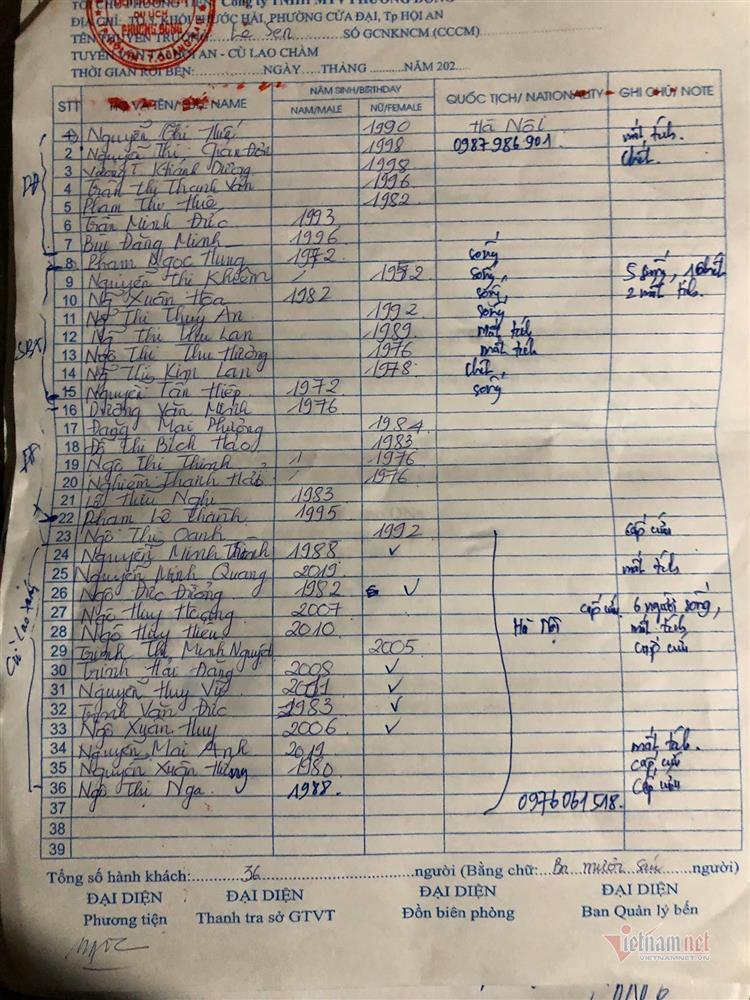 Công ty TNHH MTV PHƯƠNG ĐÔNG
ĐỊA CHỈ: TỔ 3, KHỐI PHƯỚC HẢI, PHƯỜNG CỬA ĐẠI, Tp HỘI AN
TÊN THUYỀN TRƯỞNG: Lê Sen SỐ GCNKNCM (CCCM)
AN - CÙ LAO CHÀM
THỜI GIAN RỜI BẾN: NGÀY THÁNG NĂM 202
DU LỊCH
PHƯƠNG ĐÔNG
STT HỌ VÀ TÊN/ NAME NĂM SINH/BIRTHDAY QUỐC TỊCH/ NATIONALITY GHI CHÚ/ NOTE
NAM/MALE NỮ/FEMALE
1 Nguyễn Thị Huế 1990 Hà Nội mất tích
2 Nguyễn Thị 1998 0987986901. chết
3 Khánh Dương 1998
4 Trần Thị Thanh Vân 1996
5 Phạm Thu Huê 1982
6 Trần Minh Đức 1993
7 Bùi Đăng Minh 1996
8 Phạm Ngọc Hùng 1972 sống
9 Nguyễn Thị Khiêm sống, 5 sống, 1 chết
10 Ng Xuân Hòa 1982 sống, 2 mất tích.
11 Ng Thị Thúy An 1992 sống
12 Ng Thị Thu Lan 1989 Mất tích
13 Ngô Thị Thu Hường 1976 mất tích
14 Ng Thị Kim Lan 1978 chết,
15 Nguyễn Tấn Hiệp 1972 sống
16 Dương Văn Minh 1976
17 Đặng Mai Phương 1984
18 Đỗ Thị Bích Hảo 1983
19 Ngô Thị Thịnh / 1976
20 Nghiêm Thanh Hải / 1976
21 Lê Hữu Nghị 1983
22 Phạm Lê Thành 1995
23 Ngô Thị Oanh 1992 cấp cứu
24 Nguyễn Minh 1988 ✓
25 Nguyễn Minh Quang 2019 mất tích
26 Ngô Đức Đường 1982 ✓
27 Ngô Huy Hoàng 2007 cấp cứu 6 người sống,
28 Ngô Huy Hiếu 2010 Hà Nội mất tích
29 Trịnh Thị Minh Nguyệt 2005 cấp cứu
30 Trịnh Hải Đăng 2008 ✓
31 Nguyễn Huy 2011 ✓
32 Trịnh Văn Đức 1983 ✓
33 Ngô Xuân Huy 2006 ✓
34 Nguyễn Mai Anh mất tích.
35 Nguyễn Xuân Hùng 1980 cấp cứu
36 Ngô Thị Nga 1988. Cấp cứu
37 0976061518.
38
39
Tổng số hành khách: 36 người (Bằng chữ: Ba mươi sáu người)
ĐẠI DIỆN ĐẠI DIỆN ĐẠI DIỆN ĐẠI DIỆN
Phương tiện Thanh tra sở GTVT Đồn biên phòng Ban Quản lý bến
Vietnamnet
VIETNAMNET.VN